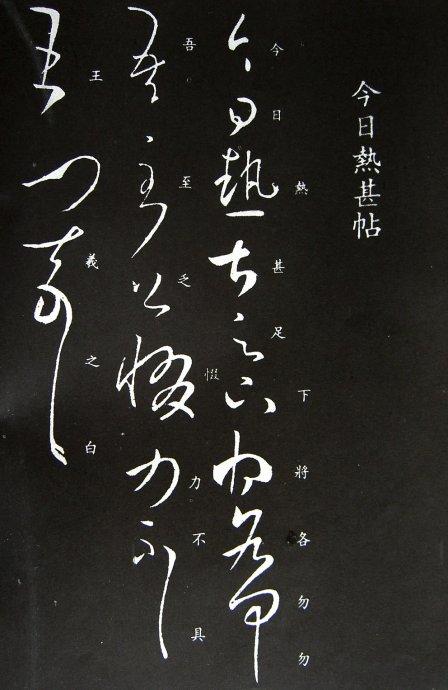 今日熱甚帖
今日熱甚足下將各勿勿
吾至乏惙力不具
王羲之白